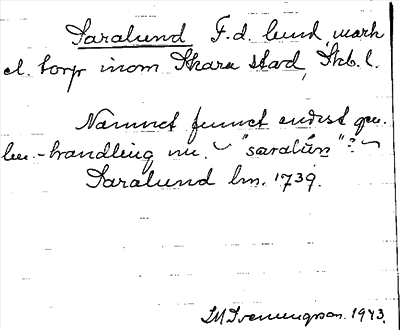 Saralund F.d. lund, mark
el. torp inom Skara stad, Skb. l.
Namnet funnet endast gm.
lm.-handling nu. "saralŭn"?
Saralund lm. 1739.
1943.